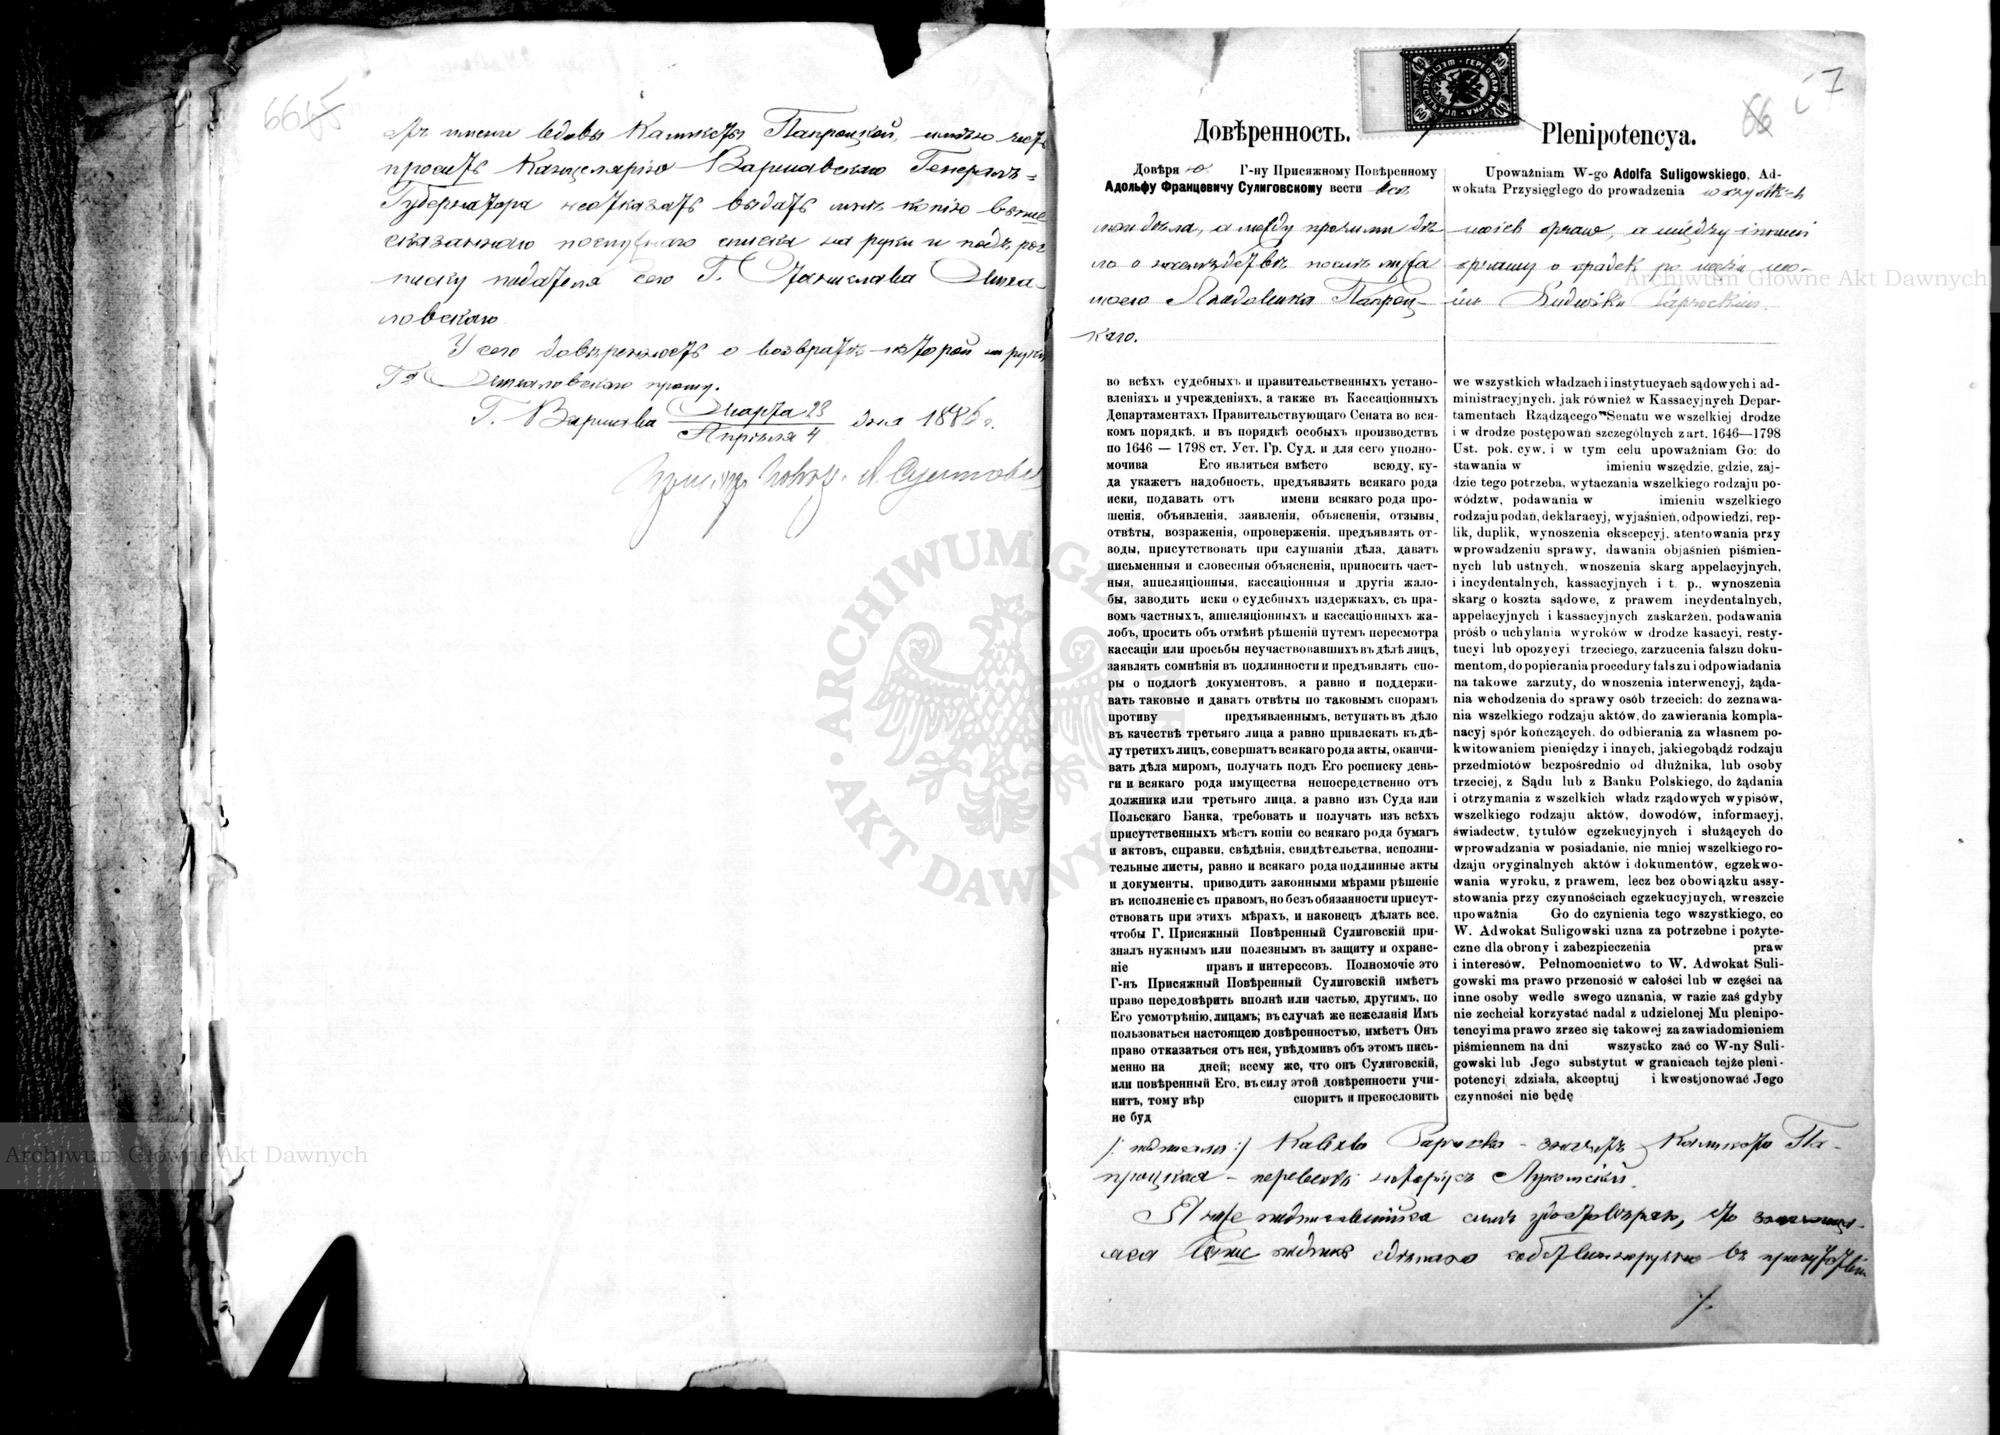 отъ имени вдовы Каликсты Папроцкой, имѣю честь
просить Канцелярію Варшавскаго Генералъ-
Губернатора не отказать выдать мнѣ копію выше
сказаннаго послужнаго списка на руки и подъ рос
писку подателя сего Г. Станислава
ловскаго.
У сего довѣренность о возвратѣ которой на руки
Г-на прошу.
Г. Варшава Марта 23 / Апрѣля 4 дня 1886 г.
Присяж. Повѣр. А. Сулиговскі
66
67
Довѣренность.
Довѣряю Г-ну Присяжному Повѣренному
Адольфу Францевичу Сулиговскому вести всѣ
мои дѣла, а между прочими дѣ
ло о наслѣдствѣ послѣ мужа
моего Людовика Папроц-
каго.
во всѣхъ судебныхъ и правительственныхъ устано-
вленіяхъ и учрежденіяхъ, а также въ Кассаціонныхъ
Департаментахъ Правительствующаго Сената во вся-
комъ порядкѣ, и въ порядкѣ особыхъ производствъ
по 1646 — 1798 ст. Уст. Гр. Суд. и для сего уполно-
мочива Его являться вмѣсто всюду, ку-
да укажетъ надобность, предъявлять всякаго рода
иски, подавать отъ имени всякаго рода про-
шенія, объявленія, заявленія, объясненія, отзывы,
отвѣты, возраженія, опроверженія, предъявлять от-
воды, присутствовать при слушаніи дѣла, давать
письменныя и словесныя объясненія, приносить част-
ныя, аппеляціонныя, кассаціонныя и другія жало-
бы, заводить иски о судебныхъ издержкахъ, съ пра-
вомъ частныхъ, аппеляціонныхъ и кассаціонныхъ жа-
лобъ, просить объ отмѣнѣ рѣшеній путемъ пересмотра
кассаціи или просьбы неучаствовавшихъ въ дѣлѣ лицъ,
заявлять сомнѣнія въ подлинности и предъявлять спо-
ры о подлогѣ документовъ, а равно и поддержи-
вать таковые и давать отвѣты по таковымъ спорамъ
противу предъявленнымъ, вступать въ дѣло
въ качествѣ третьяго лица а равно привлекать къ дѣ-
лу третихъ лицъ, совершать всякаго рода акты, оканчи-
вать дѣла миромъ, получать подъ Его росписку день-
ги и всякаго рода имущества непосредственно отъ
должника или третьяго лица, а равно изъ Суда или
Польскаго Банка, требовать и получать изъ всѣхъ
присутственныхъ мѣстъ копіи со всякаго рода бумагъ
и актовъ, справки, свѣдѣнія, свидѣтельства, исполни-
тельные листы, равно и всякаго рода подлинные акты
и документы, приводить законными мѣрами рѣшеніе
въ исполненіе съ правомъ, но безъ обязанности присут-
ствовать при этихъ мѣрахъ, и наконецъ дѣлать все,
чтобы Г. Присяжный Повѣренный Сулиговскій при-
зналъ нужнымъ или полезнымъ въ защиту и охране-
ніе правъ и интересовъ. Полномочіе это
Г-нъ Присяжный Повѣренный Сулиговскій имѣетъ
право передовѣрить вполнѣ или частью, другимъ, по
Его усмотрѣнію, лицамъ; въ случаѣ же нежеланія Имъ
пользоваться настоящею довѣренностью, имѣетъ Онъ
право отказаться отъ нея, увѣдомивъ объ этомъ пись-
менно на дней; всему же, что онъ Сулиговскій,
или повѣренный Его, въ силу этой довѣренности учи-
нитъ, тому вѣр спорить и прекословить
не буд
Plenipotencya.
Upoważniam W-go Adolfa Suligowskiego, Ad-
wokata Przysięgłego do prowadzenia wszystkich
moich spraw, a między innemi
sprawy o spadek po mężu mo-
im Ludwiku Paprockim.
we wszystkich władzach i instytucyach sądowych i ad-
ministracyjnych, jak również w Kassacyjnych Depar-
tamentach Rządzącego Senatu we wszelkiej drodze
i w drodze postępowań szczególnych z art. 1646—1798
Ust. pok. cyw. i w tym celu upoważniam Go: do
stawania w imieniu wszędzie, gdzie, zaj-
dzie tego potrzeba, wytaczania wszelkiego rodzaju po-
wództw, podawania w imieniu wszelkiego
rodzaju podań, deklaracyj, wyjaśnień, odpowiedzi, rep-
lik, duplik, wynoszenia ekscepcyj, atentowania przy
wprowadzeniu sprawy, dawania objaśnień piśmien-
nych lub ustnych, wnoszenia skarg appelacyjnych,
i incydentalnych, kassacyjnych i t. p., wynoszenia
skarg o koszta sądowe, z prawem incydentalnych,
appelacyjnych i kassacyjnych zaskarżeń, podawania
próśb o uchylania wyroków w drodze kasacyi, resty-
tucyi lub opozycyi trzeciego, zarzucenia fałszu doku-
mentom, do popierania procedury fałszu i odpowiadania
na takowe zarzuty, do wnoszenia interwencyj, żąda-
nia wchodzenia do sprawy osób trzecich; do zeznawa-
nia wszelkiego rodzaju aktów, do zawierania kompla-
nacyj spór kończących, do odbierania za własnem po-
kwitowaniem pieniędzy i innych, jakiegobądź rodzaju
przedmiotów bezpośrednio od dłużnika, lub osoby
trzeciej, z Sądu lub z Banku Polskiego, do żądania
i otrzymania z wszelkich władz rządowych wypisów,
wszelkiego rodzaju aktów, dowodów, informacyj,
świadectw, tytułów egzekucyjnych i służących do
wprowadzania w posiadanie, nie mniej wszelkiego ro-
dzaju oryginalnych aktów i dokumentów, egzekwo-
wania wyroku, z prawem, lecz bez obowiązku assy-
stowania przy czynnościach egzekucyjnych, wreszcie
upoważnia Go do czynienia tego wszystkiego, co
W. Adwokat Suligowski uzna za potrzebne i pożyte-
czne dla obrony i zabezpieczenia praw
i interesów. Pełnomocnictwo to W. Adwokat Suli-
gowski ma prawo przenosić w całości lub w części na
inne osoby wedle swego uznania, w razie zaś gdyby
nie zechciał korzystać nadal z udzielonej Mu plenipo-
tencyi ma prawo zrzec się takowej za zawiadomieniem
piśmiennem na dni wszystko zaś co W-ny Suli-
gowski lub Jego substytut w granicach tejże pleni-
potencyi zdziała, akceptuj i kwestjonować Jego
czynności nie będę
/: подписала :/ Kaliksta Paprocka - значитъ Каликста Па-
процкая - перевелъ нотаріусъ
Я ниже подписавшійся симъ удостовѣряю, что
аяся подпись сдѣлана собственноручно въ присутствіи
ARCHIWUM GŁÓWNE AKT DAWNYCH
Archiwum Główne Akt Dawnych
Archiwum Główne Akt Dawnych